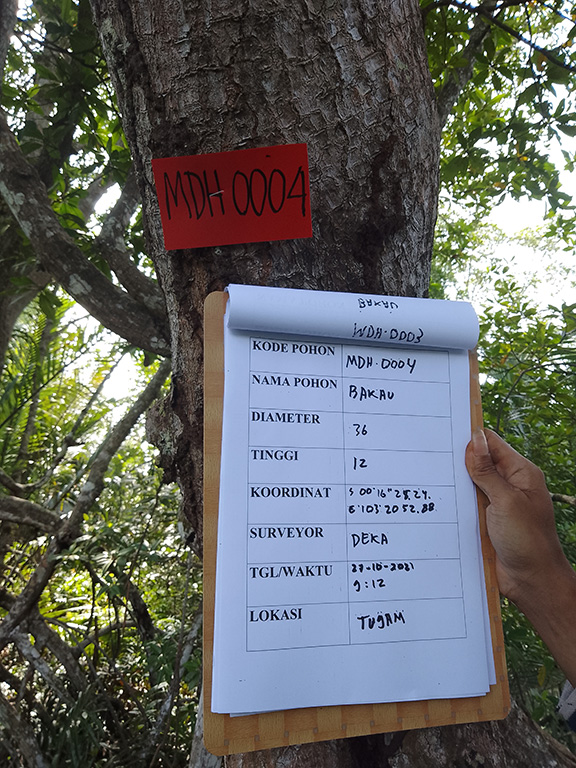 MDH 0004
BAKAU
MDH-0003
KODE POHON MDH-0004
NAMA POHON BAKAU
DIAMETER 36
TINGGI 12
KOORDINAT S 00°16" 25.24.
E°103°20 52.88.
SURVEYOR DEKA
TGL/WAKTU 27-10-2021
9:12
LOKASI TUJAM